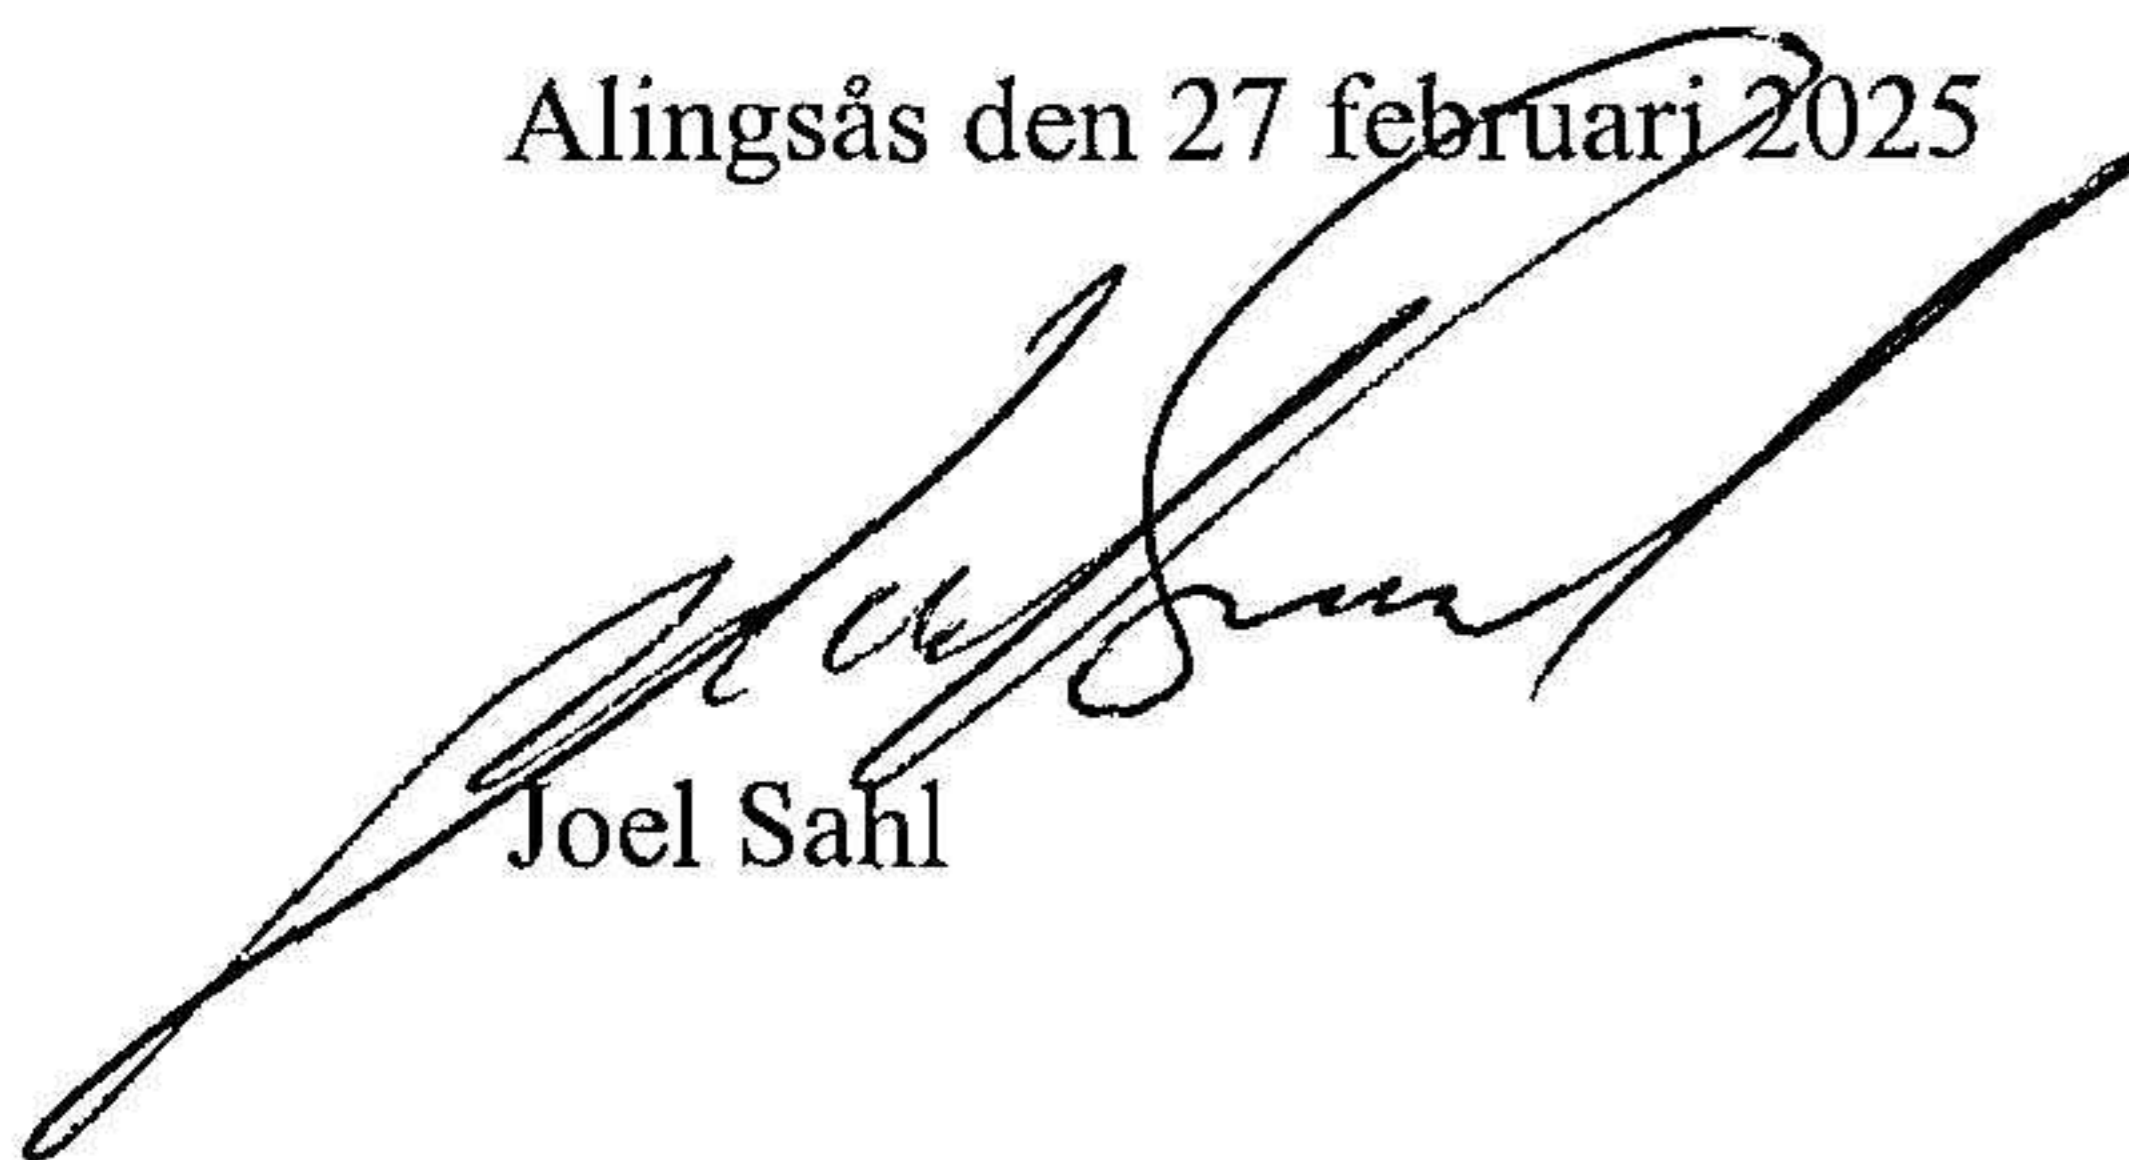 Alingsås den 27 februari 2025
Joel Sahl